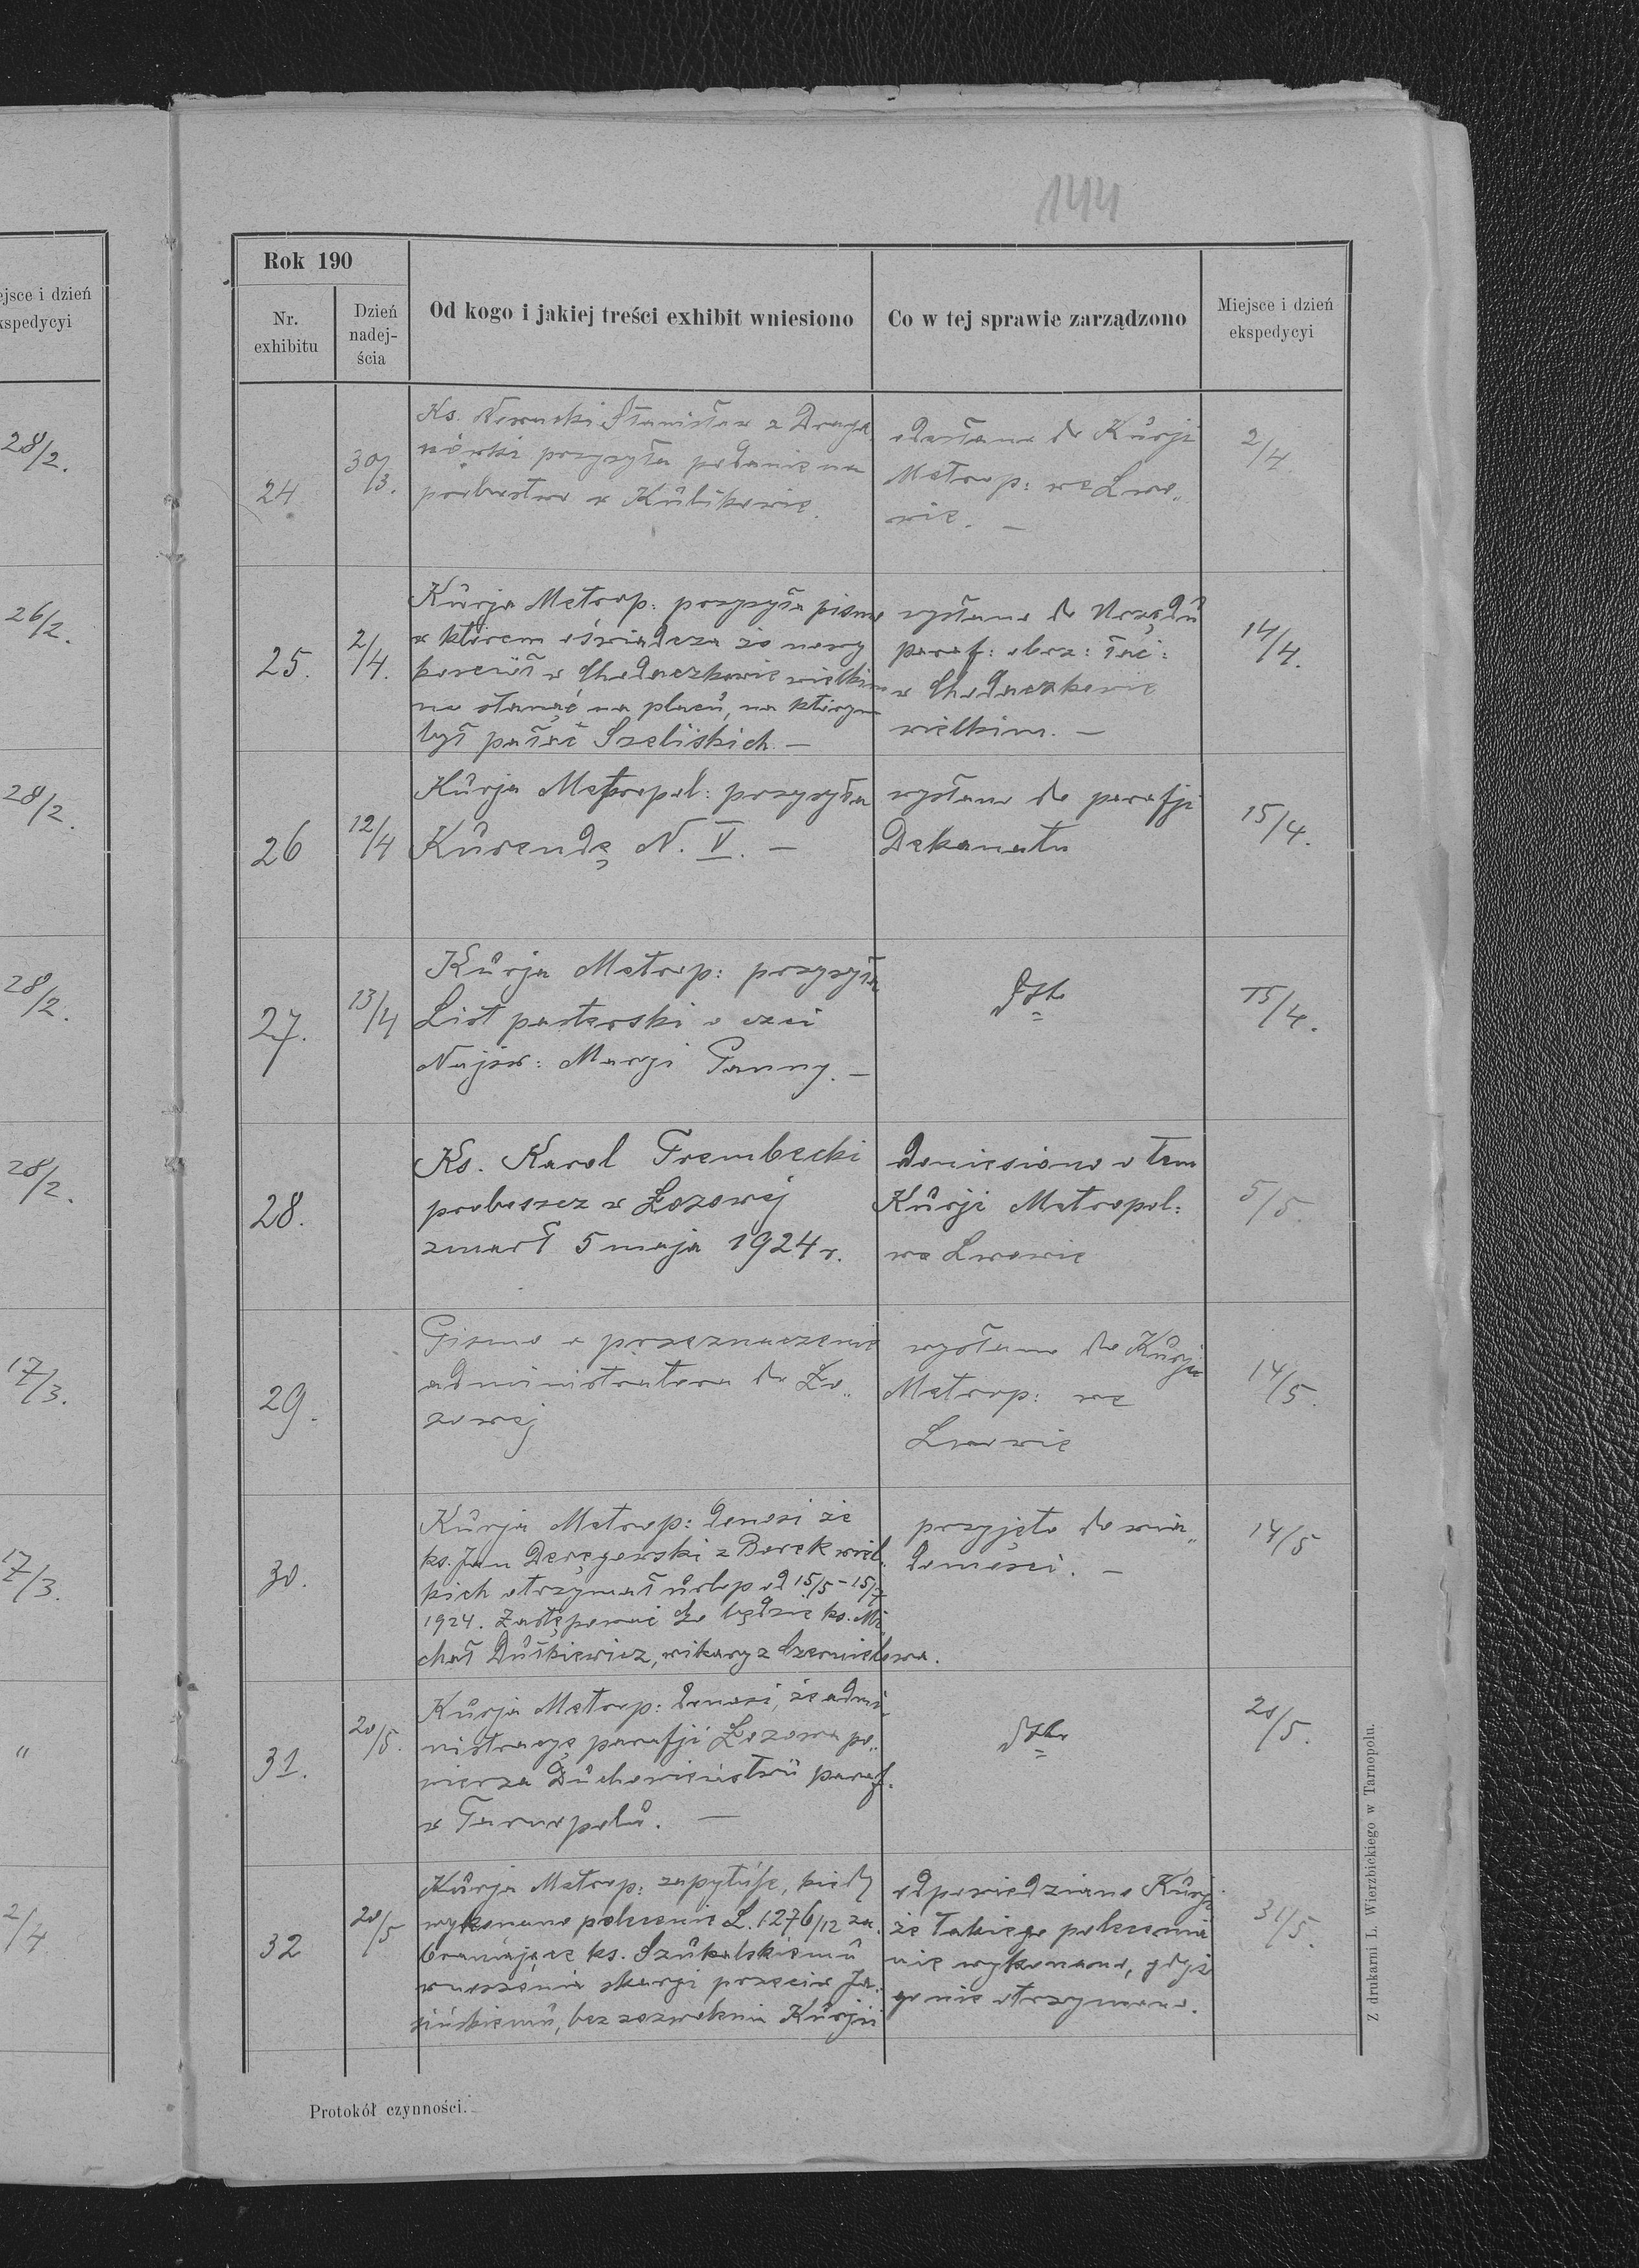 144
ejsce i dzień
kspedycyi
28/2.
26/2.
28/2.
28/2.
28/2.
17/3.
17/3.
"
2/4
Rok 190
Nr.
exhibitu
Dzień
nadej-
ścia
Od kogo i jakiej treści exhibit wniesiono
Co w tej sprawie zarządzono
Miejsce i dzień
ekspedycyi
24.
30/3.
Ks. Stanisław z Draga
nówki przysyła podanie na
probostwo w Kulikowie.
odesłano do Kurji
Metrop: we Lwo„
wie. —
2/4.
25.
2/4.
Kurja Metrop: przysyła pismo
w którem oświadcza że nowy
kościół w Chodaczkowie wielkim
ma stanąć na placu, na którym
był pałac Szeliskich. —
wysłano do Urzędu
paraf: obrz: łać:
w Chodaczkowie
wielkim. —
14/4.
26
12/4
Kurja Metropol: przysyła
Kurendę N. V. —
wysłano do parafji
Dekanatu
15/4.
27.
13/4
Kurja Metrop: przysyła
List pasterski o czci
Najśw: Marji Panny. —
dtto
15/4.
28.
Ks. Karol Trembecki
proboszcz w Łozowej
zmarł 5 maja 1924 r.
doniesiono o tem
Kurji Metropol:
we Lwowie
5/5.
29.
Pismo o przeznaczenie
administratora do Ło„
zowej
wysłano do Kurji
Metrop: we
Lwowie
14/5.
30.
Kurja Metrop: donosi że
ks. Jan Deręgowski z Borek wiel„
kich otrzymał urlop od 15/5 – 15/7
1924. Zastępować Go będzie ks. Mi
chał Dutkiewicz, wikary z Czernielowa.
przyjęto do wia„
domości. —
14/5
31.
20/5.
Kurja Metrop: donosi, że admi
nistrację parafji Łozowa po„
wierza Duchowieństwu paraf.
w Tarnopolu. —
dtto
20/5.
32
20/5
Kurja Metrop: zapytuje, kiedy
wykonano polecenie L. 1276/12 za„
braniające ks. Szukalskiemu
wnoszenia skargi przeciw Ja„
sińskiemu, bez zezwolenia Kurji
odpowiedziano Kurji
że takiego polecenia
nie wykonano, gdyż
go nie otrzymano.
31/5.
Protokół czynności.
Z drukarni L. Wierzbickiego w Tarnopolu.